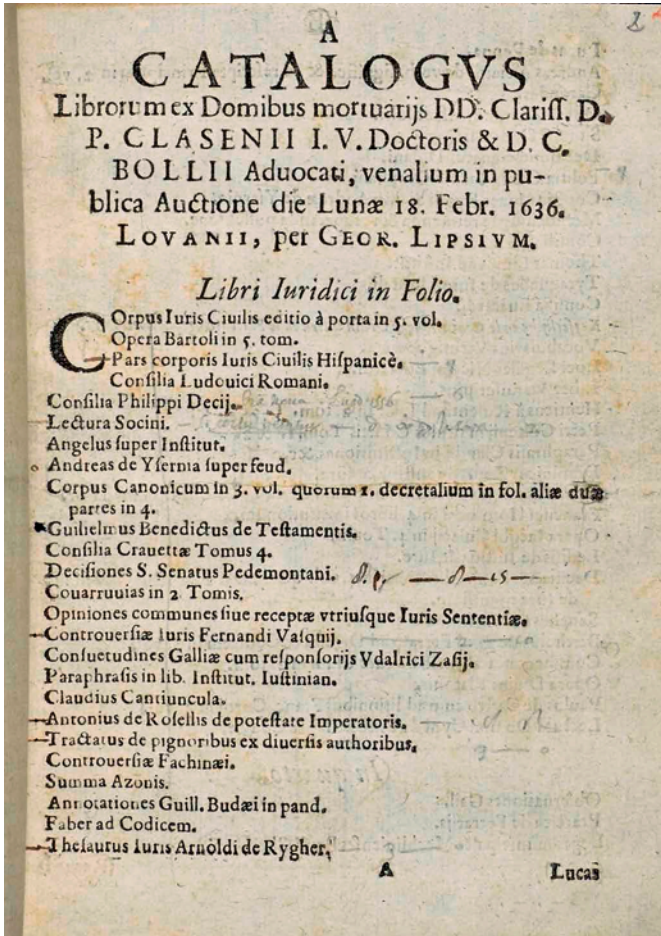 2
A
CATALOGVS
Librorum ex Domibus mortuarijs DD. Clariſſ. D.
P. CLASENII I. V. Doctoris & D. C.
BOLLII Aduocati, venalium in pu-
blica Auctione die Lunæ 18. Febr. 1636.
LOVANII, per GEOR. LIPSIVM.
Libri Iuridici in Folio.
COrpus Iuris Ciuilis editio à porta in 5. vol.
Opera Bartoli in 5. tom.
Pars corporis Iuris Ciuilis Hiſpanicè.
Conſilia Ludouici Romani.
Conſilia Philippi Decij.
Lectura Socini.
Angelus ſuper Inſtitut.
Andreas de Yſernia ſuper feud.
Corpus Canonicum in 3. vol. quorum 1. decretalium in fol. aliæ duæ
partes in 4.
Guilielmus Benedictus de Teſtamentis.
Conſilia Crauettæ Tomus 4.
Deciſiones S. Senatus Pedemontani. — 8 — 15 —
Couarruuias in 2 Tomis.
Opiniones communes ſiue receptæ vtriuſque Iuris Sententiæ.
Controuerſiæ Iuris Fernandi Vaſquij.
Conſuetudines Galliæ cum reſponſorijs Vdalrici Zaſij.
Paraphraſis in lib. Inſtitut. Iuſtinian.
Claudius Cantiuncula.
Antonius de Roſellis de poteſtate Imperatoris.
Tractatus de pignoribus ex diuerſis authoribus.
Controuerſiæ Fachinæi.
Summa Azonis.
Annotationes Guill. Budæi in pand.
Faber ad Codicem.
Theſaurus Iuris Arnoldi de Rygher.
A Lucas